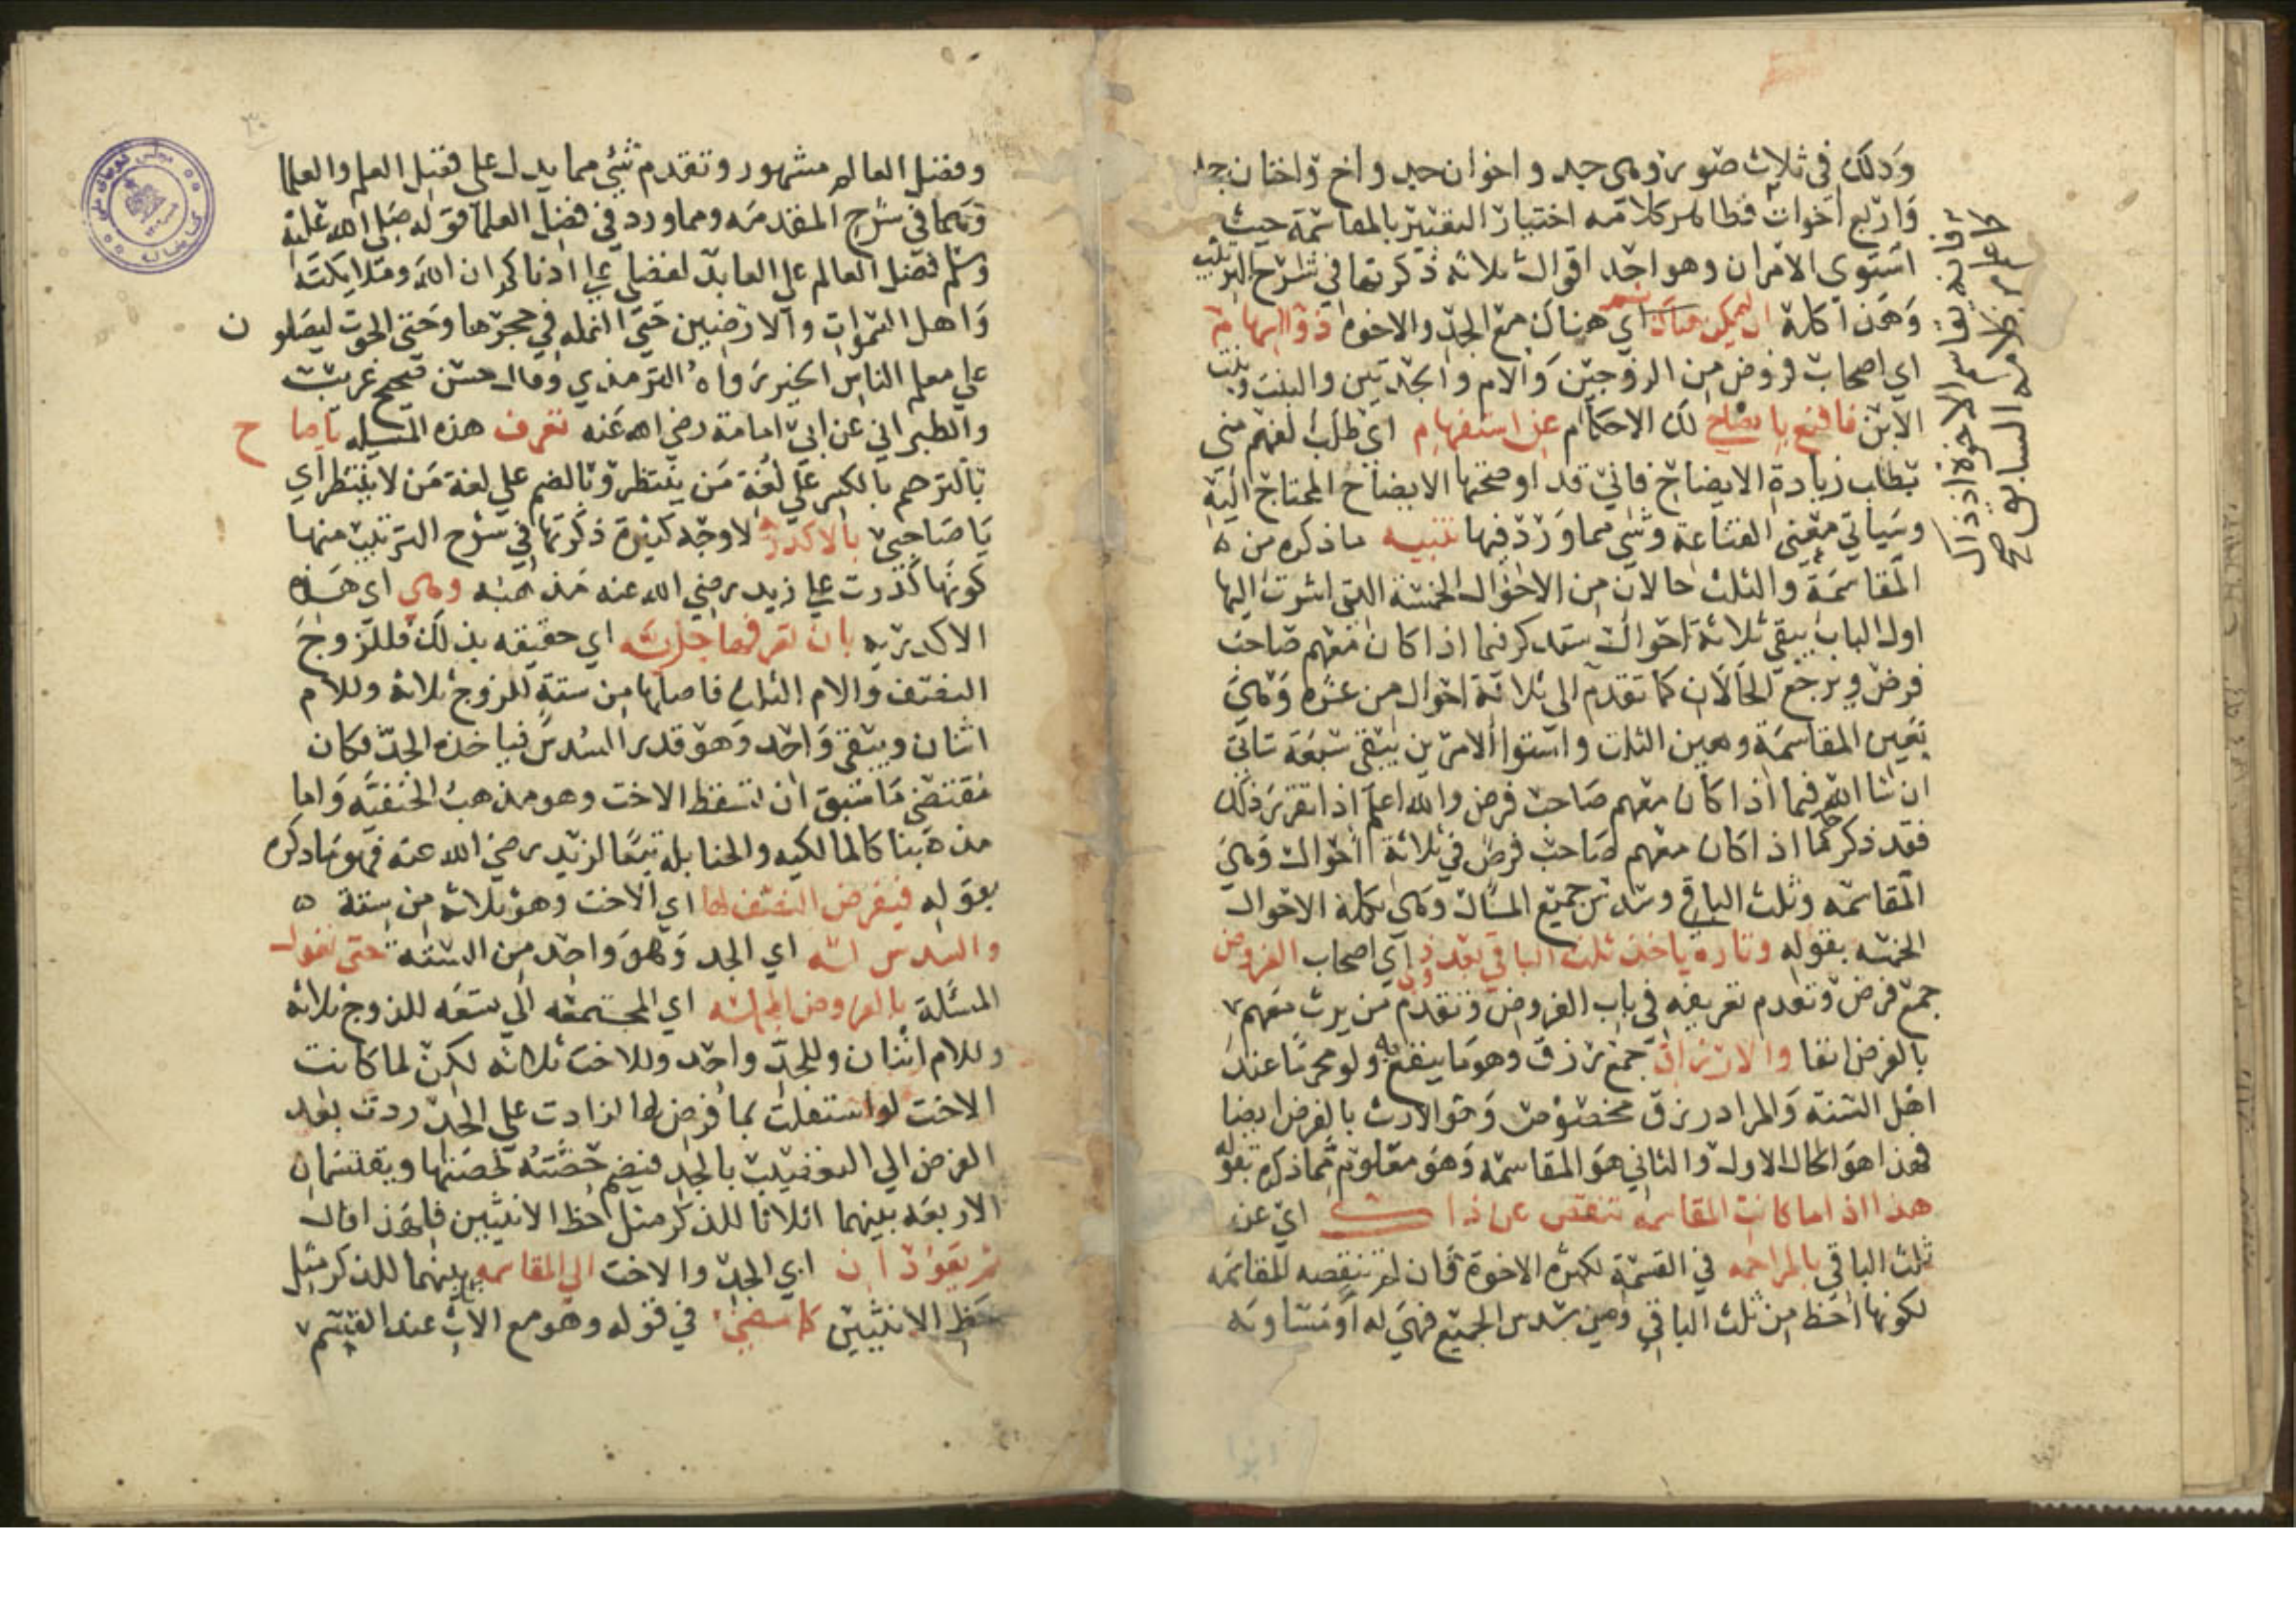 وذلك في ثلاث صور وهي جد واخوان جد واخ واختان جد
واربع اخوات فظاهر كلامه اختيار التعبير بالمقاسمة حيث
استوي الامران وهو احد اقوال ثلاثة ذكرتها في شرح الترتيب
وهذا كله ان لم يكن هناك اي هناك مع الجد والاخوة ذو السهام
اي اصحاب فروض من الزوجين والام والجدتين والبنت وبنت
الابن فاقنع بايضاحي لك الاحكام عن استفهام اي طلب لفهم مني
بطلب زيادة الايضاح فاني قد اوضحتها الايضاح المحتاج اليه
وسياتي معني القناعة وشي مما ورد فيها تنبيه ما ذكره من
المقاسمة والثلث حالان من الاحوال الخمسة التي اشرت اليها
اول الباب يبقي ثلاثة احوال ستذكر فيما اذا كان معهم صاحب
فرض ويرجع الحالان كما تقدم الي ثلاثة احوال من عشرة وهي
تعين المقاسمة وتعين الثلث واستوا الامرين يبقي سبعة تاتي
ان شا الله فيما اذا كان معهم صاحب فرض والله اعلم اذا تقرر ذلك
فقد ذكر حكما اذا كان معهم صاحب فرض في ثلاثة احوال وهي
المقاسمة وثلث الباقي وسدس جميع المال وهي تكملة الاحوال
الخمسة بقوله وتارة ياخذ ثلث الباقي بعد ذوي اي اصحاب الفروض
جمع فرض وتقدم تعريفه في باب الفروض وتقدم من يرث معهم
بالفرض انفا والارزاق جمع رزق وهو ما ينفع به ولو محرما عند
اهل السنة والمراد رزق مخصوص وهو الارث بالفرض ايضا
فهذا هو الحال الاول والثاني هو المقاسمة وهو معلوم مما ذكره بقوله
هذا اذا ما كانت المقاسمة تنقصه عن ذاك اي عن
ثلث الباقي بالمزاحمه في القسمة لكثرة الاخوة فان لم تنقصه المقاسمة
لكونها احظ من ثلث الباقي ومن سدس الجميع فهي له او مساوية
وفضل العالم مشهور وتقدم شيء مما يدل علي فضل العلم والعلما
وهما في شرح المقدمة ومما ورد في فضل العلما قوله صلى الله عليه
وسلم فضل العالم علي العابد كفضلي علي ادناكم ان الله وملايكته
واهل السموات والارضين حتي النملة في حجرها وحتي الحوت ليصلون
علي معلم الناس الخير رواه الترمذي وقال حسن صحيح غريب
والطبراني عن ابي امامة رضي الله عنه تعرف هذه المسيله يا صاح
بالترخم بالكسر علي لغة من ينتظر وبالضم علي لغة من لا ينتظر اي
يا صاحبي بالاكدرية لاوجه كثيرة ذكرتها في شرح الترتيب منها
كونها كدرت علي زيد رضي الله عنه مذهبه وهي اي هذه
الاكدريه بان تعرفها جديرة اي حقيقه بذلك فللزوج
النصف والام الثلث فاصلها من ستة للزوج ثلاثة وللام
اثنان ويبقي واحد وهو قدر السدس فياخذه الجد فكان
مقتضي ما سبق ان تسقط الاخت وهو مذهب الحنفية واما
مذهبنا كالمالكيه والحنابله تبعا لزيد رضي الله عنه فهو ما ذكره
بقوله فيفرض النصف لها اي الاخت وهو ثلاثة من ستة
والسدس له اي الجد وهو واحد من الستة حتي تعول
المسئلة بالفروض المجمله اي المجتمعة الي تسعه للزوج ثلاثة
وللام اثنان وللجد واحد وللاخت ثلاثه لكن لما كانت
الاخت لو استقلت بما فرض لها لزادت علي الجد ردت بعد
الفرض الي التعصيب بالجد فيضم حصته لحصتها ويقتسمان
الاربعة بينهما اثلاثا للذكر مثل حظ الانثيين فلهذا قال
ثم يعودان اي الجد والاخت الي المقاسمه بينهما للذكر مثل
حظ الانثيين كما مضي في قوله وهو مع الاناث عند القسم
فانه يقاسم الاخوة اذ ذاك
ظاهر كلامه السابق صح